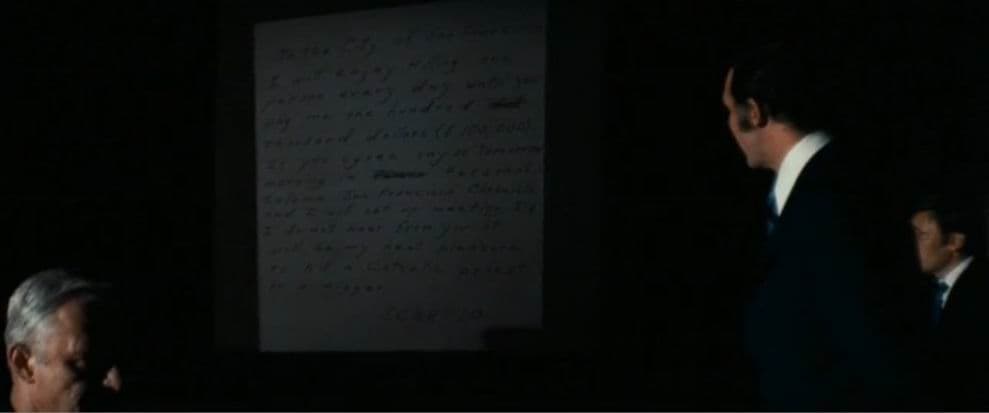 To the City of San Francisco
I will enjoy killing one
person every day until you
pay me one hundred
thousand dollars ($100,000).
If you agree say so tomorrow
morning in Personal
column San Francisco Chronicle
and I will set up meeting If
I do not hear from you it
will be my next pleasure
to kill a Catholic priest
or a nigger
SCORPIO